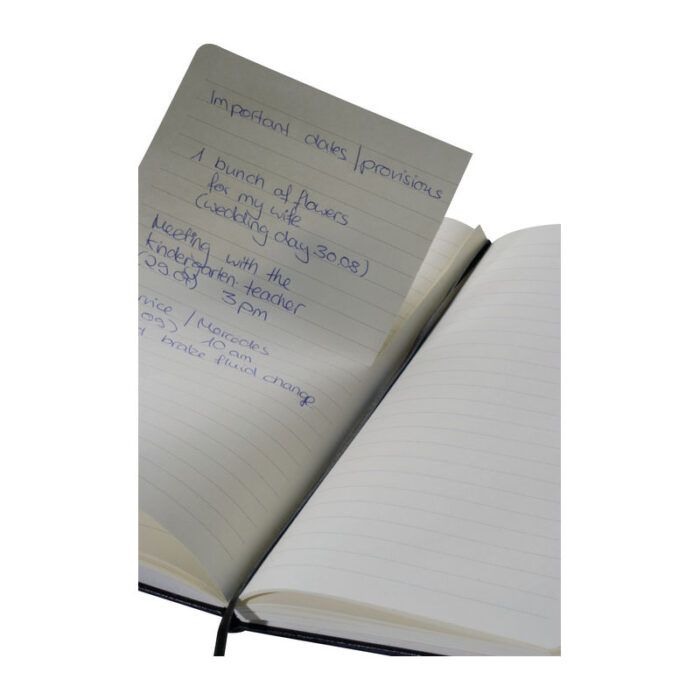 Important dates / provisions
1 bunch of flowers
for my wife
(wedding day 30.08)
Meeting with the
kindergarten teacher
(29.07) 3pm
rvice / Mercedes
09) 10 am
brake fluid change